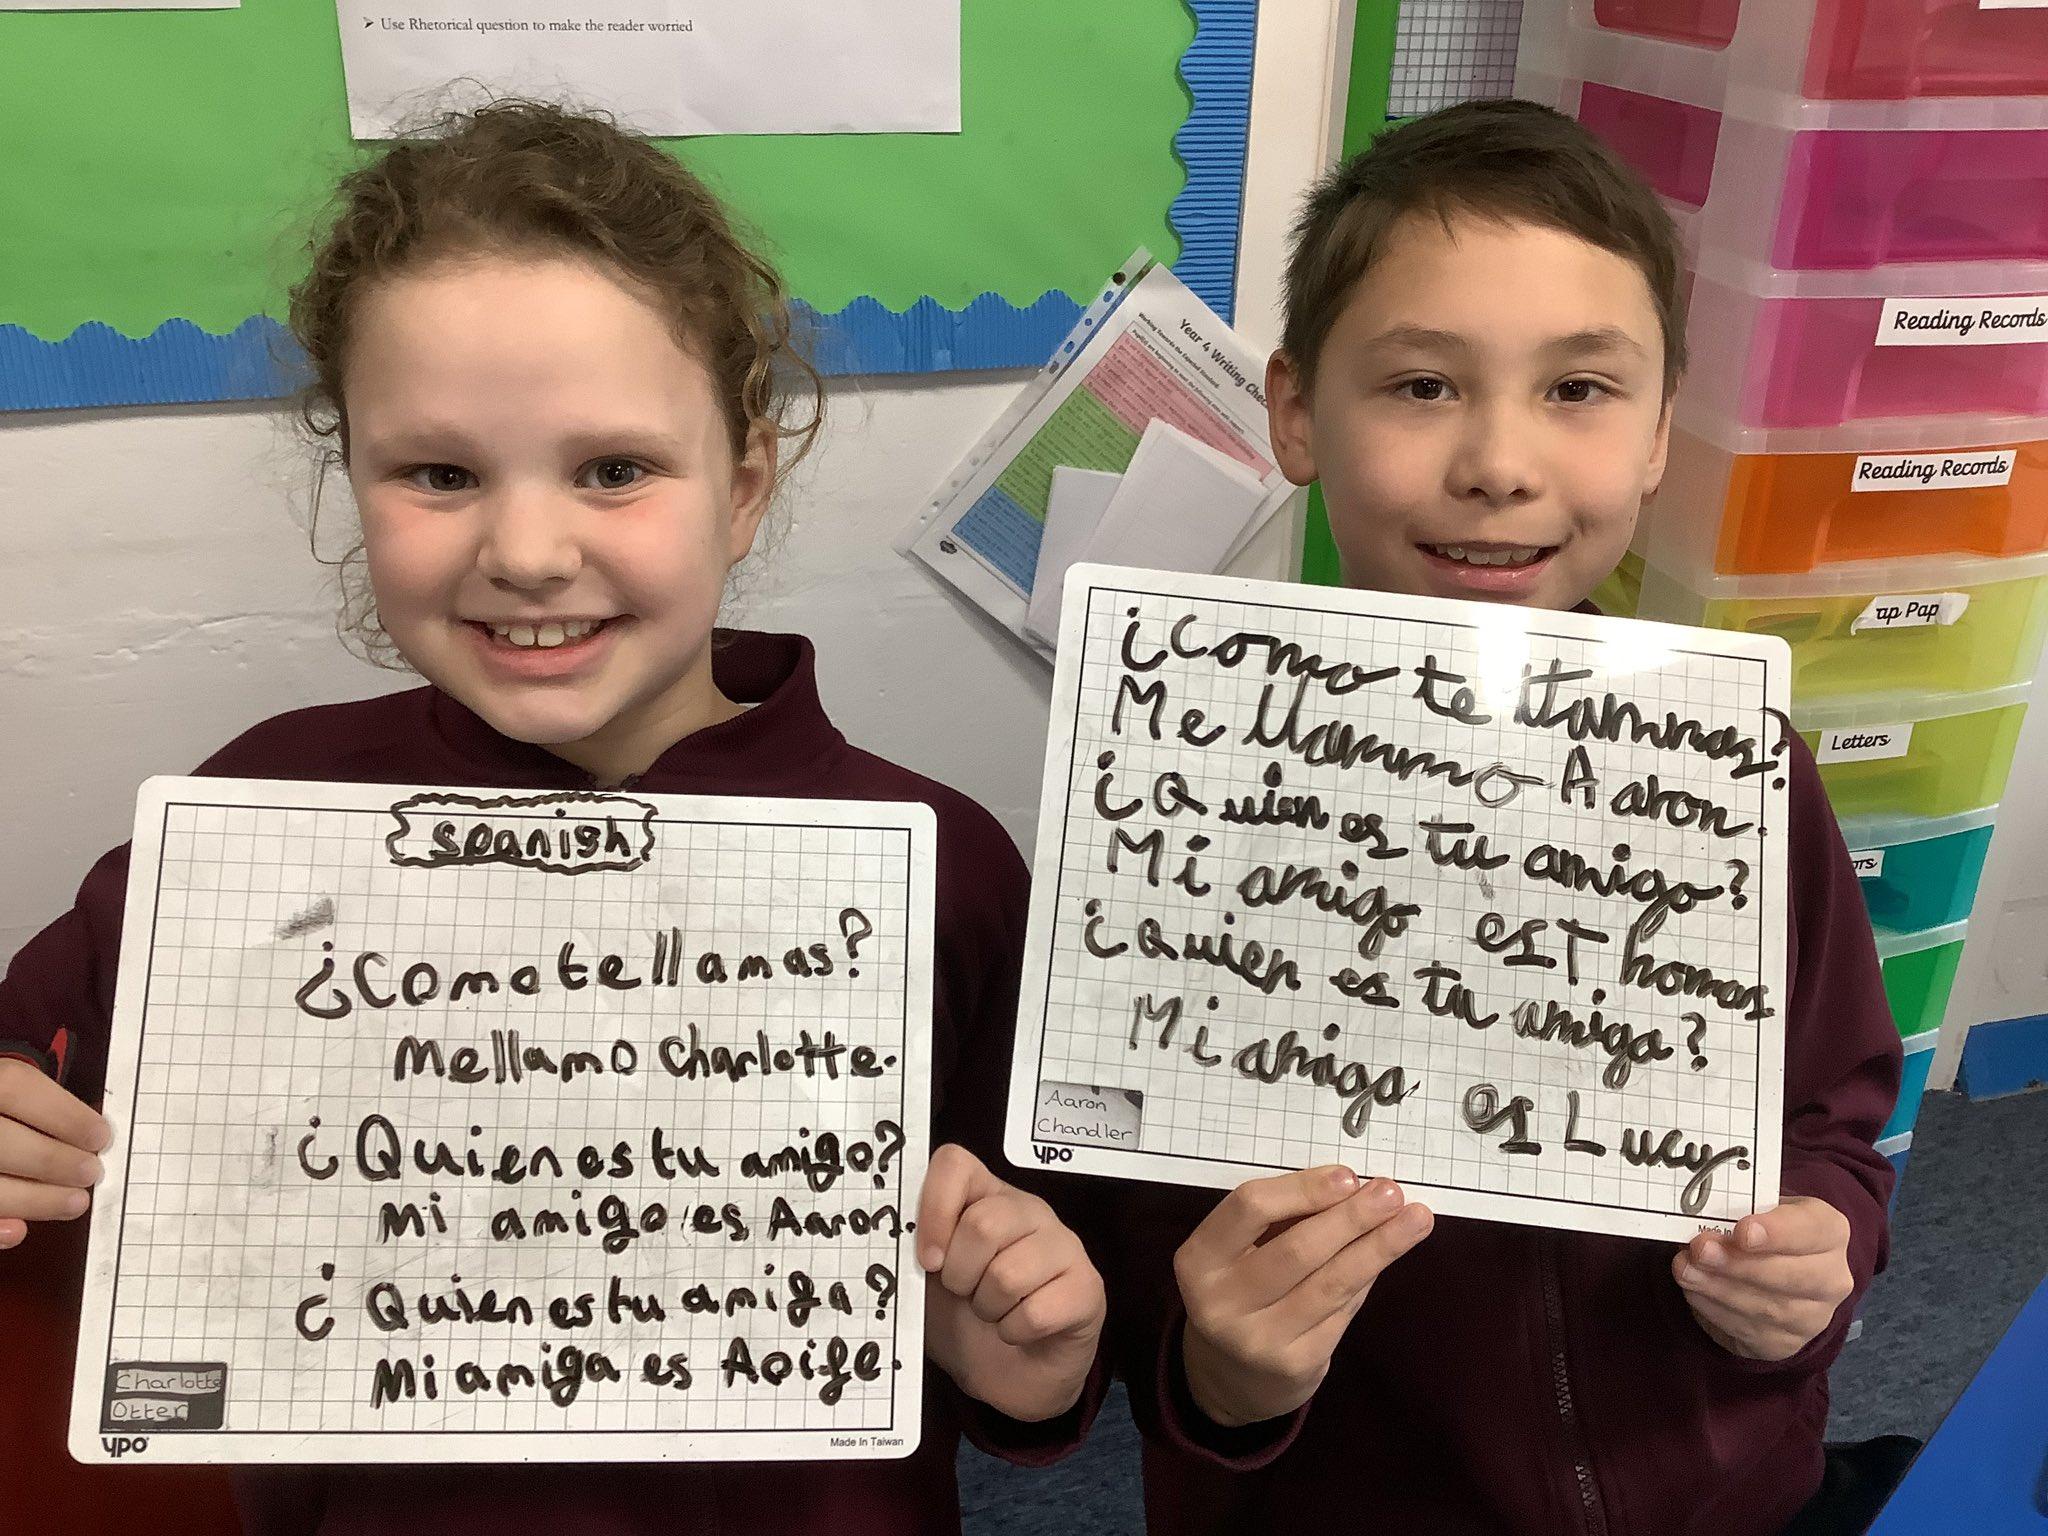 ➢ Use Rhetorical question to make the reader worried
Year 4 Writing Chec
Working Towards the Expected Standard:
Reading Records
Reading Records
ap Pap
Letters
ors
spanish
¿Como te llamas?
Me llamo Charlotte.
¿Quien es tu amigo?
Mi amigo es Aaron.
¿Quien es tu amiga?
Mi amiga es Aoife.
Charlotte
Otter
ypo
Made In Taiwan
¿Como te llammas?
Me llammo Aaron.
¿Quien es tu amigo?
Mi amigo es Thomas
¿Quien es tu amiga?
Mi amiga es Lucy.
Aaron
Chandler
ypo
Made In